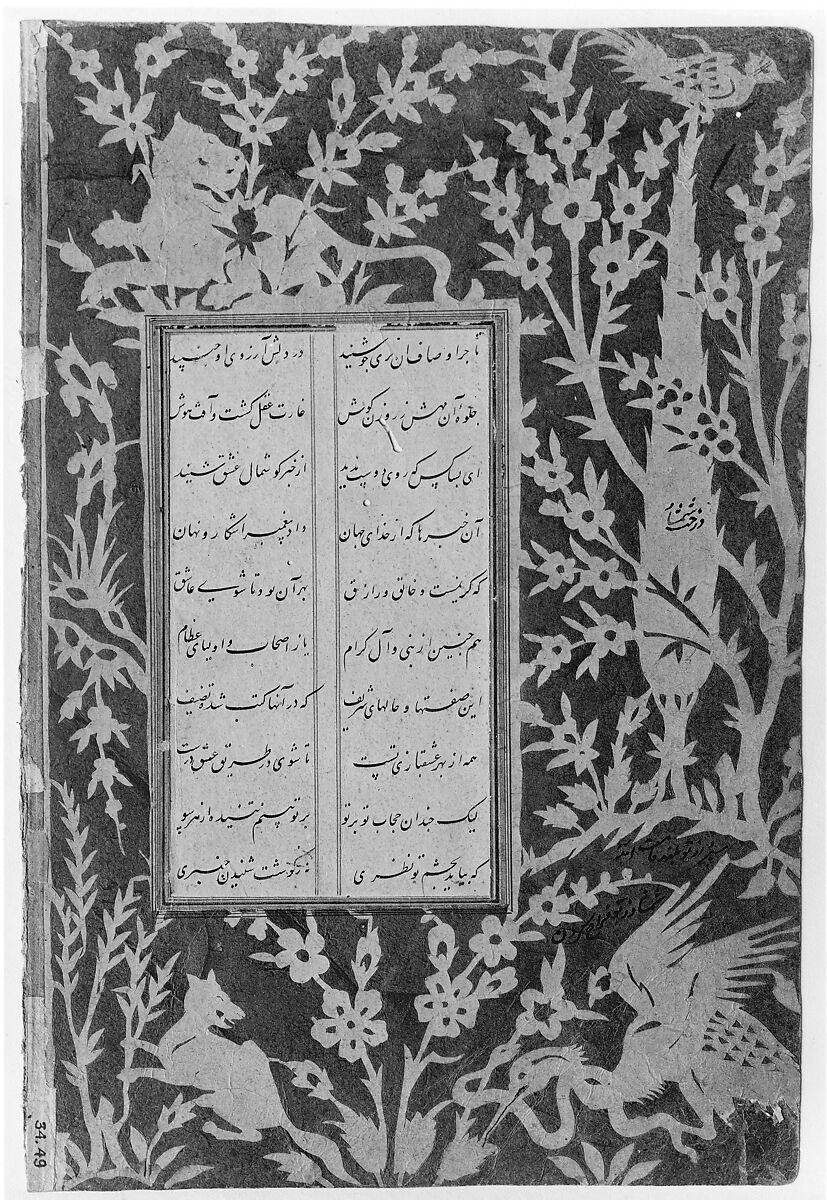 اوصاف ان در دلش آرزوی او جنبید
جلوه آن مهش ز روزن گوش غارت عقل گشت و آفت هوش
ای بسا کس که روی دوست ندید از خبر گوشمال عشق شنید
آن خبرها که از خدای جهان داد پیغمبر اشکار و نهان
که کریمست و خالق و رازق بهر آن بود تا شوی عاشق
هم چنین از نبی و آل کرام باز اصحاب و اولیای عظام
این صفتها و حالهای شریف که در آنها کتب شده تصنیف
همه از بهر عشقبازی تست تا شوی در طریق عشق درست
لیک چندان حجاب تو بر تو بر تو بینم تنیده از هر سو
که بیاید بچشم تو نظری نه بگوشت شنیدن خبری
درخت
34.49